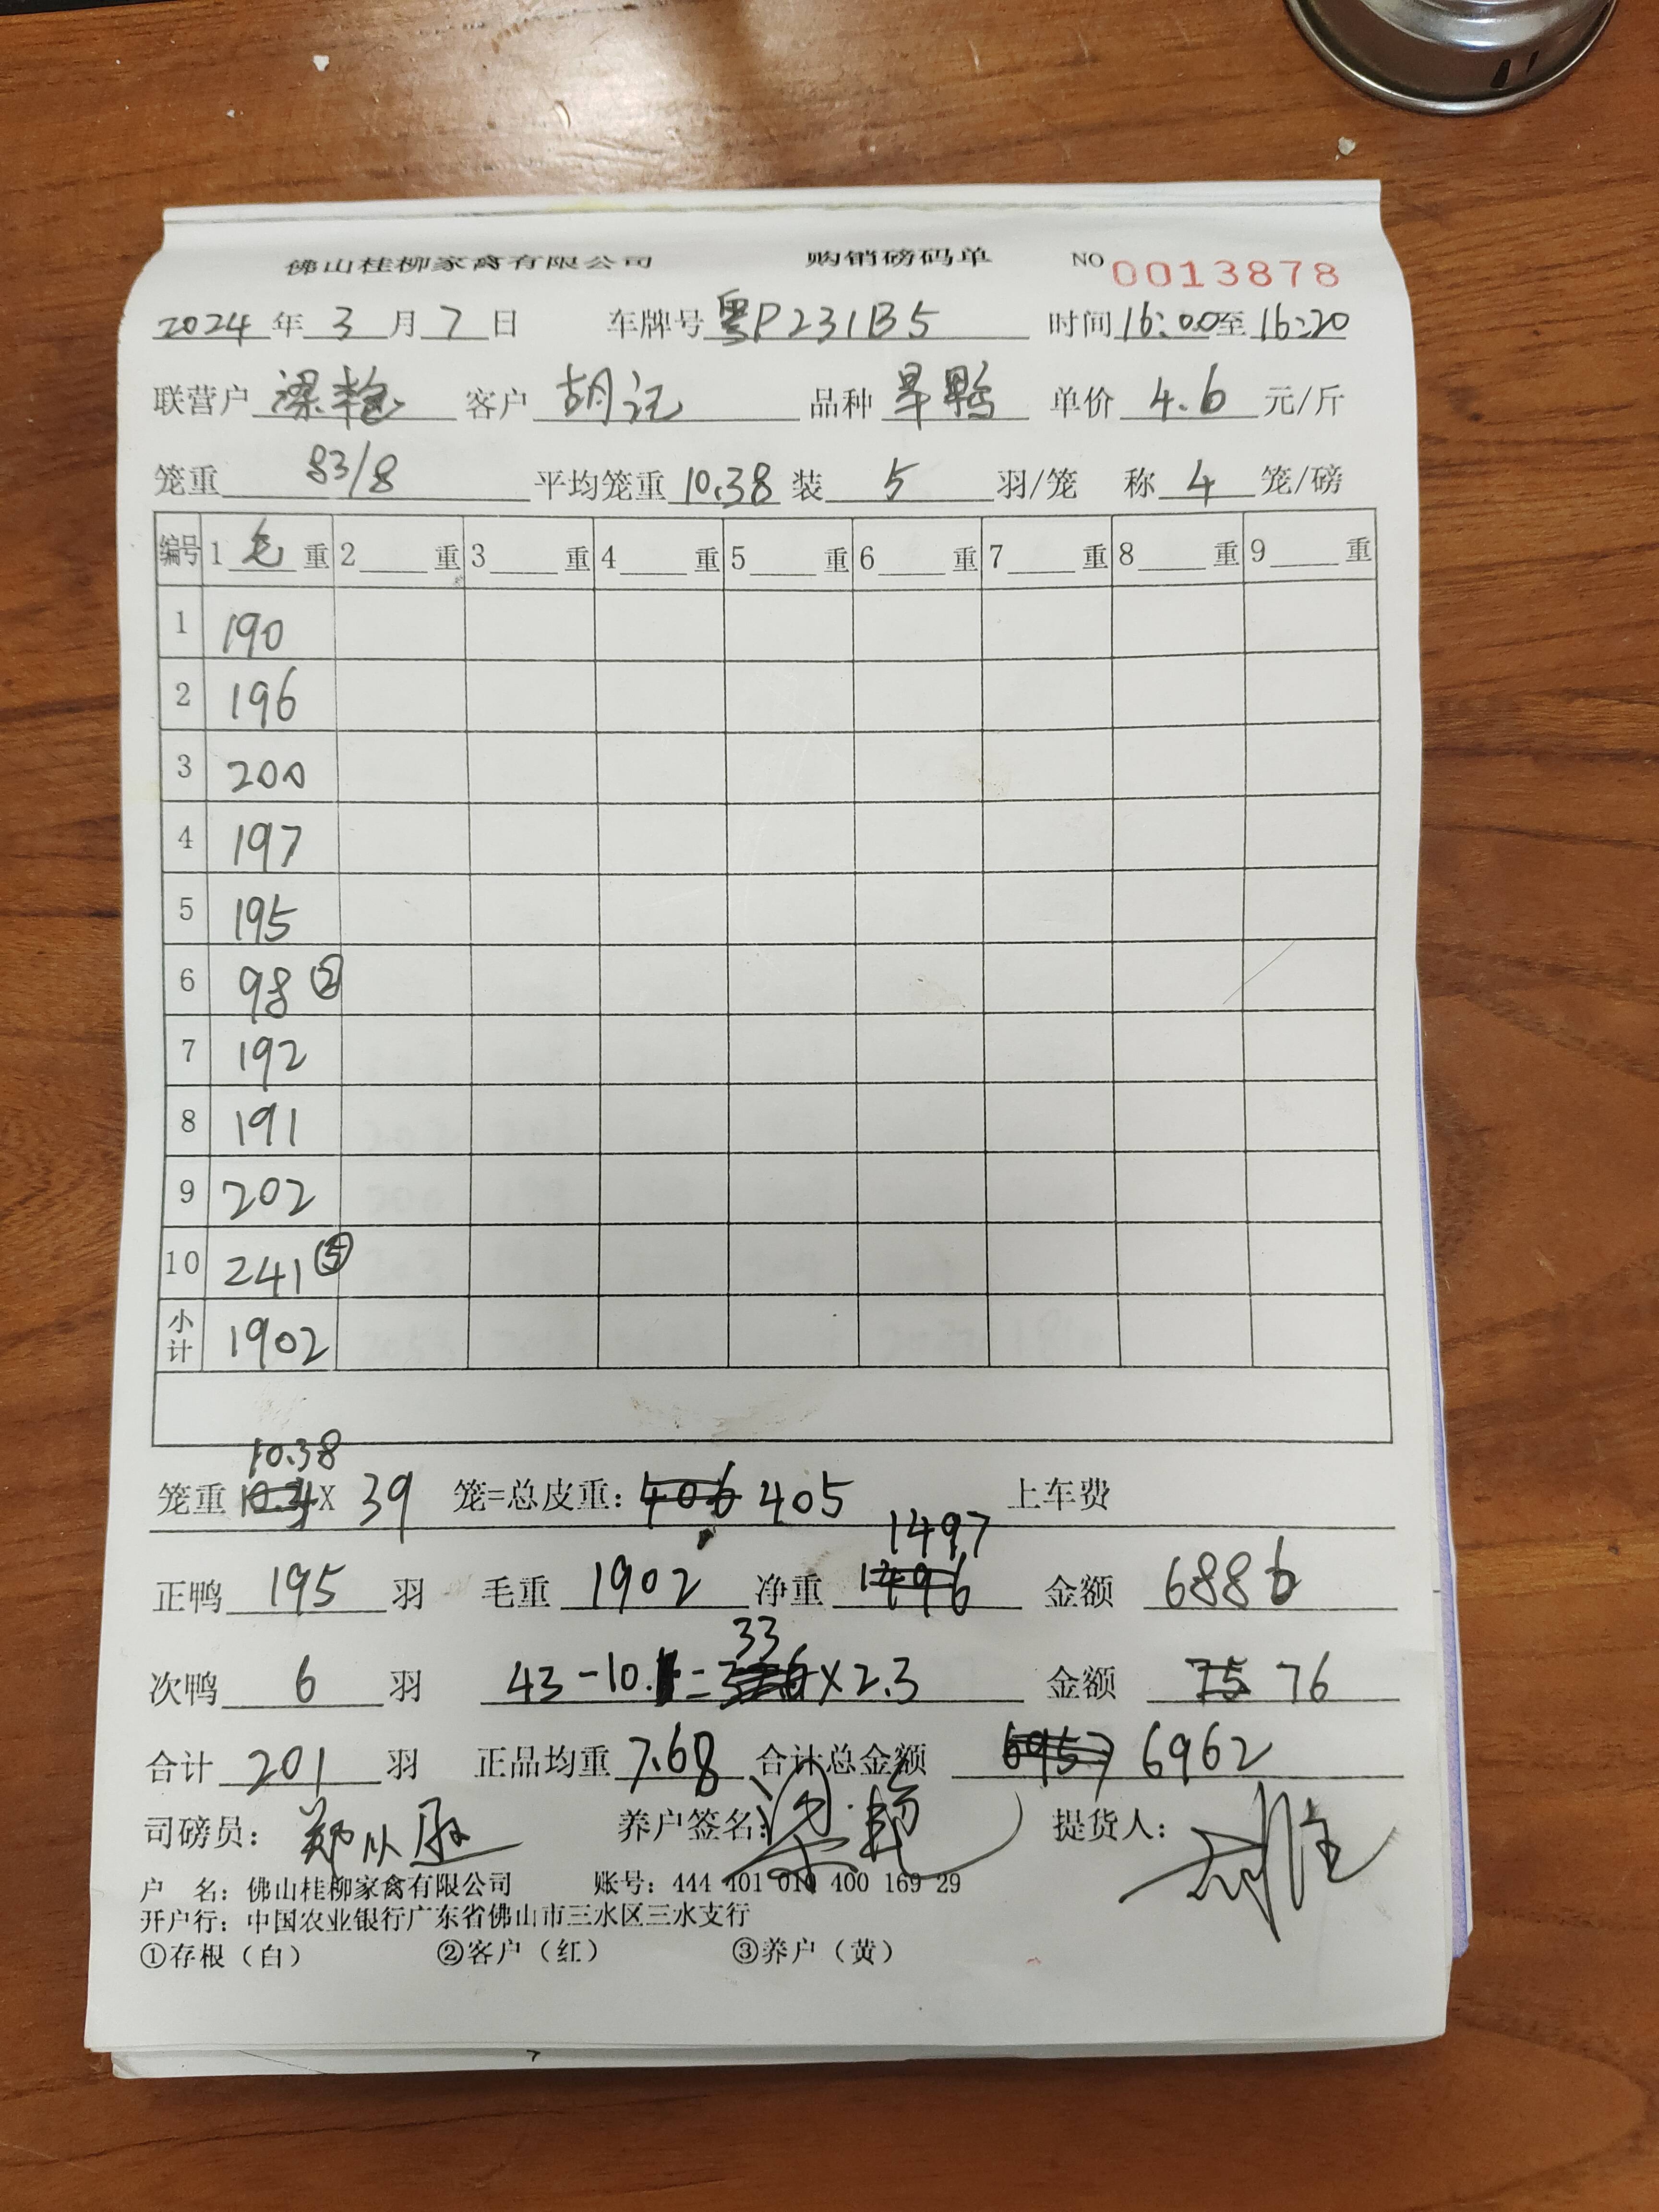 佛山桂柳家禽有限公司 购销磅码单 NO 0013878
2024 年 3 月 7 日 车牌号 粤P231B5 时间 16:00 至 16:20
联营户 梁艳 客户 胡记 品种 旱鸭 单价 4.6 元/斤
笼重 83/8 平均笼重 10.38 装 5 羽/笼 称 4 笼/磅
编号 1 毛 重 2 重 3 重 4 重 5 重 6 重 7 重 8 重 9 重
1 190
2 196
3 200
4 197
5 195
6 98 ②
7 192
8 191
9 202
10 241 ⑤
小计 1902
10.38
笼重 10.4 X 39 笼=总皮重: 406 405 上车费
1497
正鸭 195 羽 毛重 1902 净重 1496 金额 6886
33
次鸭 6 羽 43-10. = X2.3 金额 75 76
合计 201 羽 正品均重 7.68 合计总金额 6957 6962
司磅员: 养户签名: 梁艳 提货人:
户 名: 佛山桂柳家禽有限公司 账号: 444 401 010 400 169 29
开户行: 中国农业银行广东省佛山市三水区三水支行
①存根（白） ②客户（红） ③养户（黄）